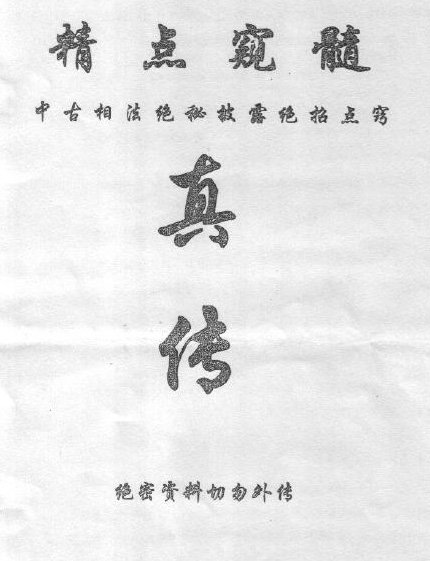 精点窥髓
中古相法绝秘披露绝招点窍
真
传
绝密资料切勿外传